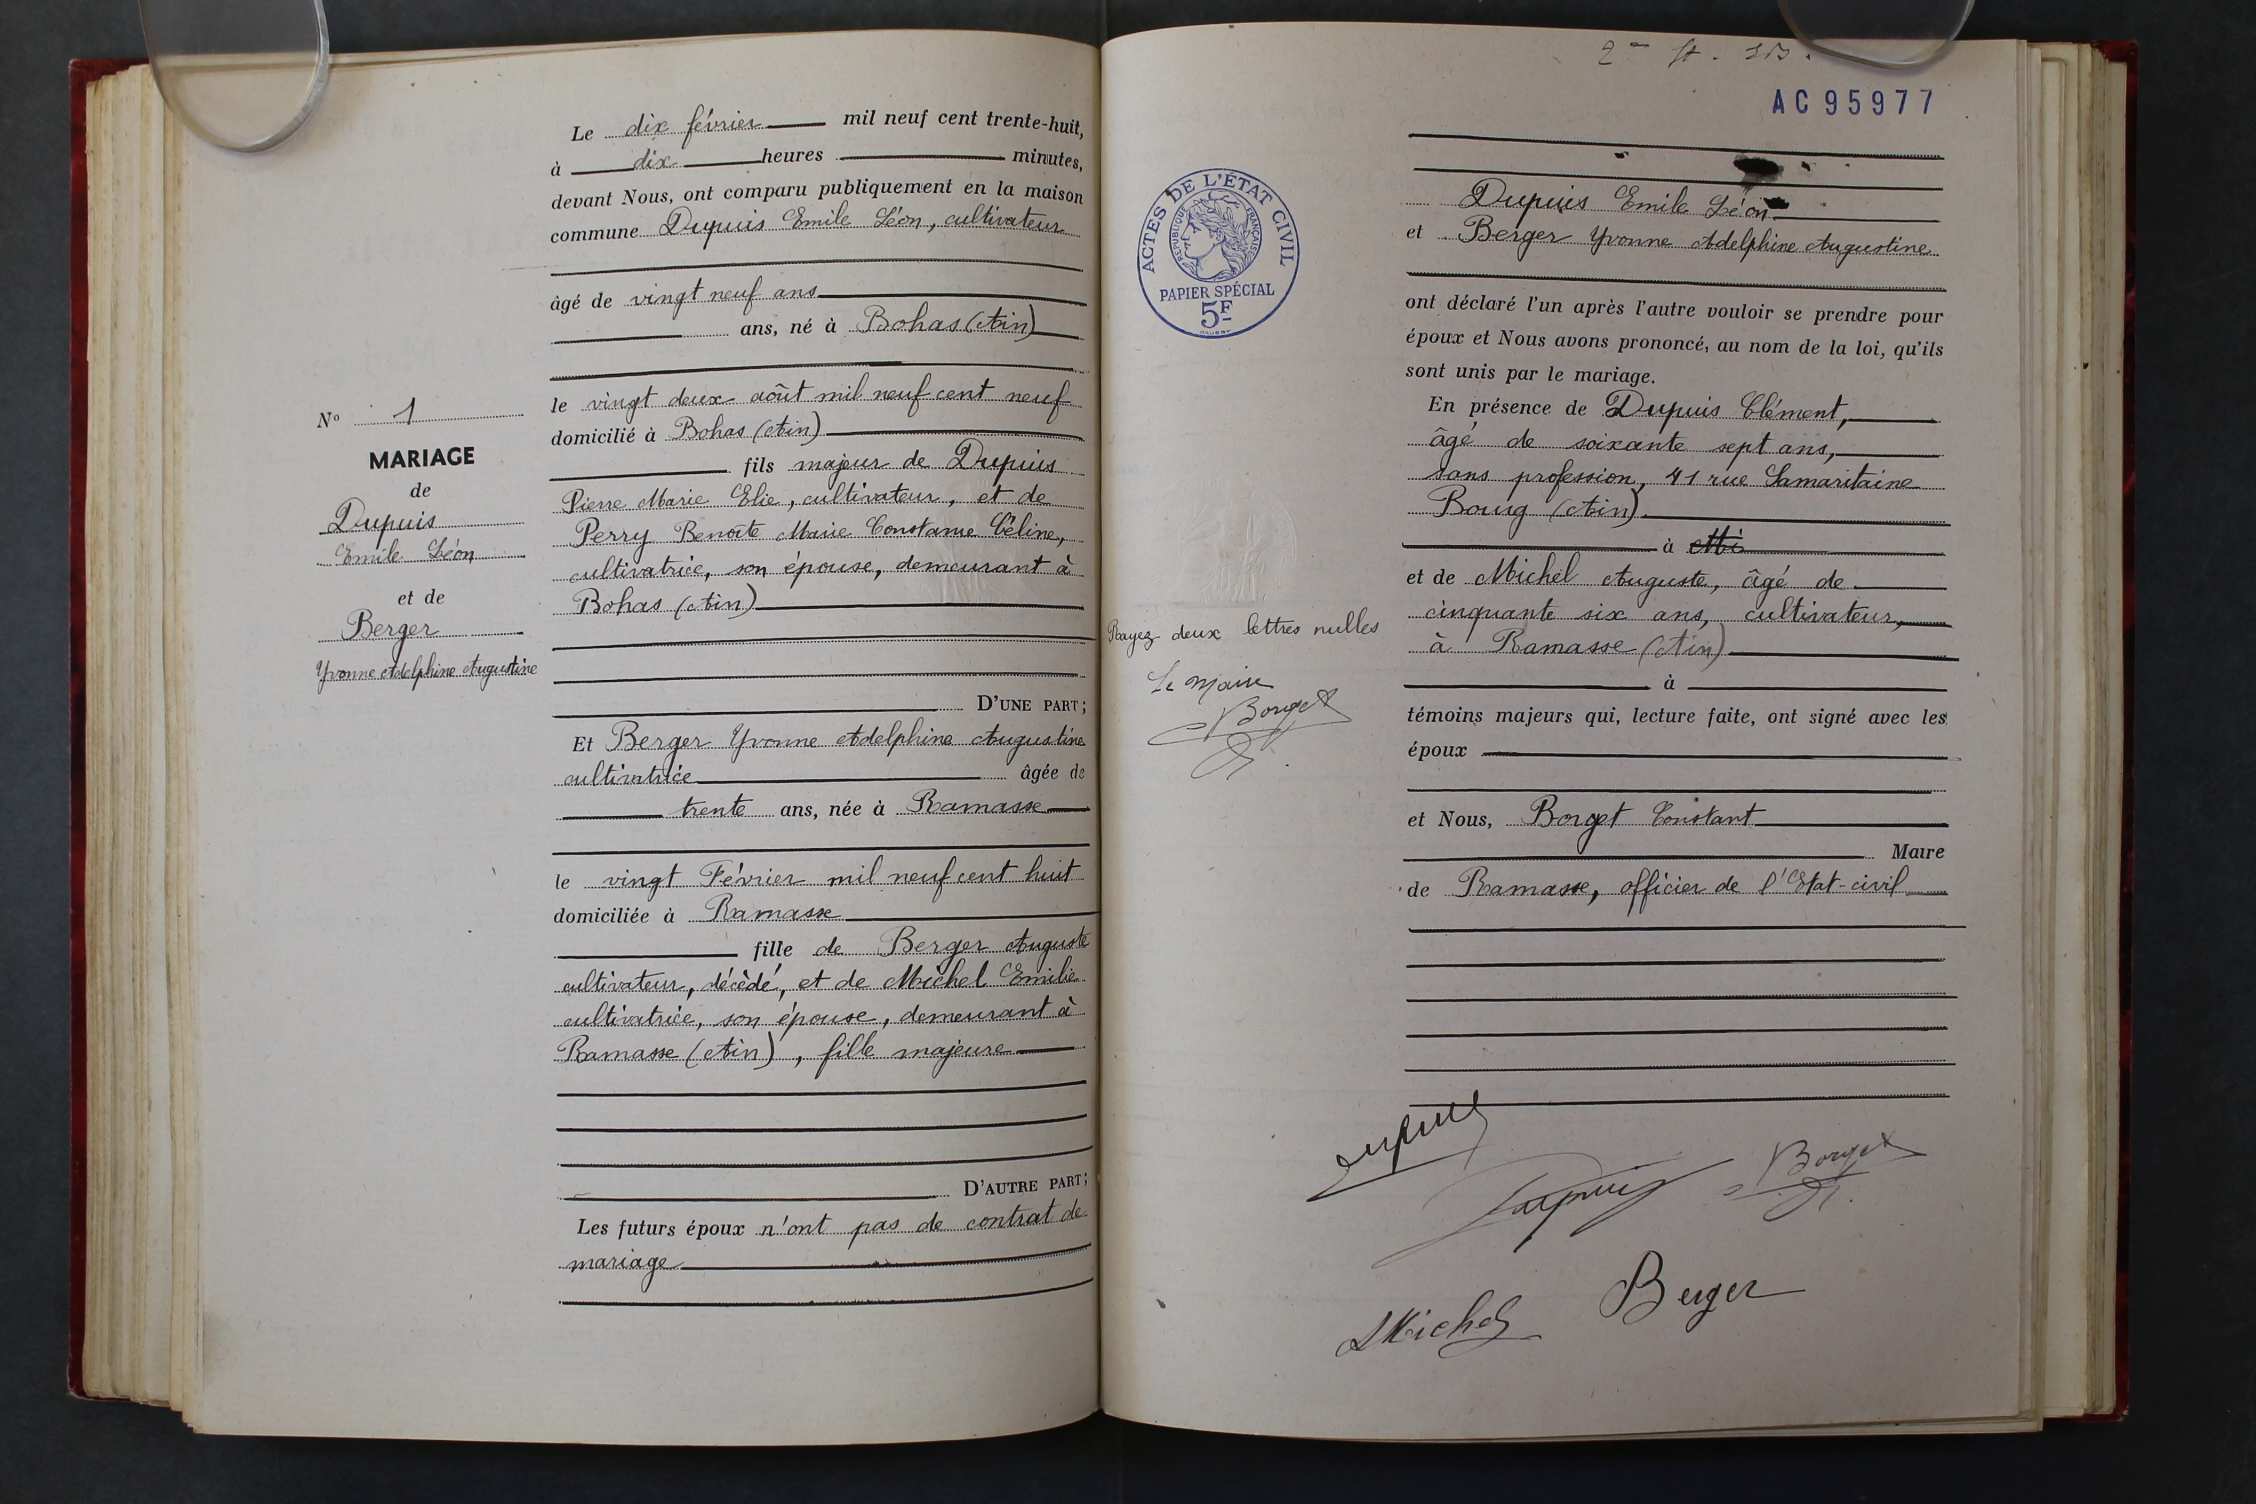 N° 1
MARIAGE
de
Dupuis
Emile Léon
et de
Berger
Yvonne Adelphine Augustine
Le dix février mil neuf cent trente-huit,
à dix heures minutes,
devant Nous, ont comparu publiquement en la maison
commune Dupuis Emile Léon, cultivateur
âgé de vingt neuf ans
ans, né à Bohas (Ain)
le vingt deux août mil neuf cent neuf
domicilié à Bohas (Ain)
fils majeur de Dupuis
Pierre Marie Elie, cultivateur, et de
Perry Benoîte Marie Constance Céline,
cultivatrice, son épouse, demeurant à
Bohas (Ain)
D'UNE PART;
Et Berger Yvonne Adelphine Augustine
cultivatrice âgée de
trente ans, née à Ramasse
le vingt Février mil neuf cent huit
domiciliée à Ramasse
fille de Berger Auguste
cultivateur, décédé, et de Michel Emilie
cultivatrice, son épouse, demeurant à
Ramasse (Ain), fille majeure
D'AUTRE PART;
Les futurs époux n'ont pas de contrat de
mariage
AC 95977
ACTES DE L'ÉTAT CIVIL
RÉPUBLIQUE FRANÇAISE
PAPIER SPÉCIAL
5F
Dupuis Emile Léon
et Berger Yvonne Adelphine Augustine
ont déclaré l'un après l'autre vouloir se prendre pour
époux et Nous avons prononcé, au nom de la loi, qu'ils
sont unis par le mariage.
En présence de Dupuis Clément,
âgé de soixante sept ans,
sans profession, 41 rue Samaritaine
Bourg (Ain)
à
et de Michel Auguste, âgé de
cinquante six ans, cultivateur,
à Ramasse (Ain)
à
témoins majeurs qui, lecture faite, ont signé avec les
époux
et Nous, Borget Constant
Maire
de Ramasse, officier de l'Etat-civil
Rayez deux lettres nulles
Le Maire
Borget
Dupuis
Dupuis
Borget
Berger
Michel